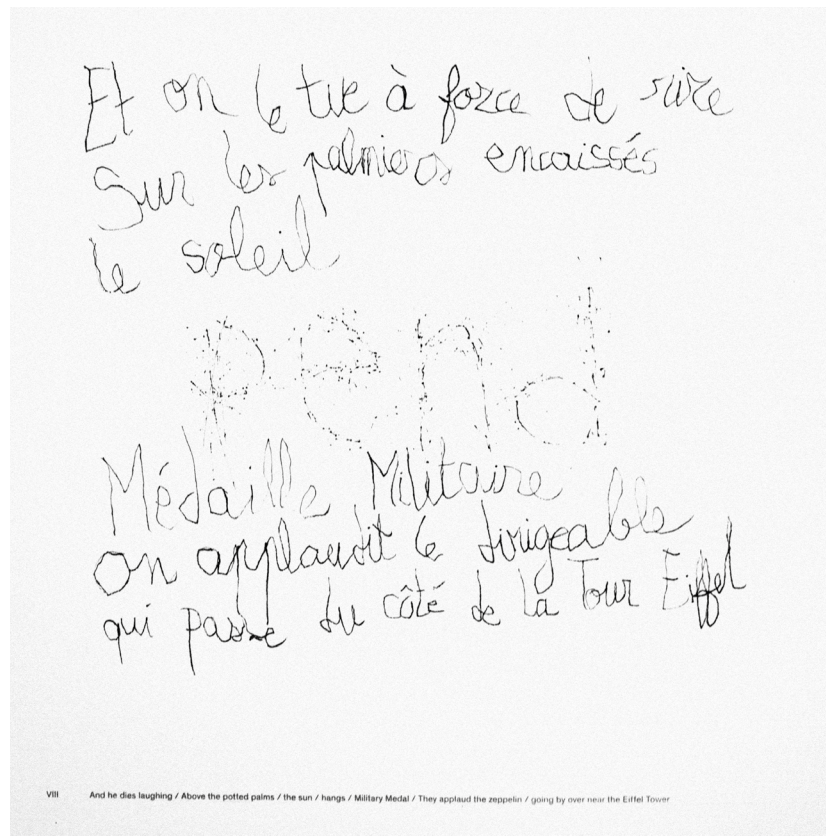 Et on le tue à force de rire
Sur les palmiers encaissés
le soleil
pend
Médaille Militaire
on applaudit le dirigeable
qui passe du côté de la Tour Eiffel
VIII And he dies laughing / Above the potted palms / the sun / hangs / Military Medal / They applaud the zeppelin / going by over near the Eiffel Tower